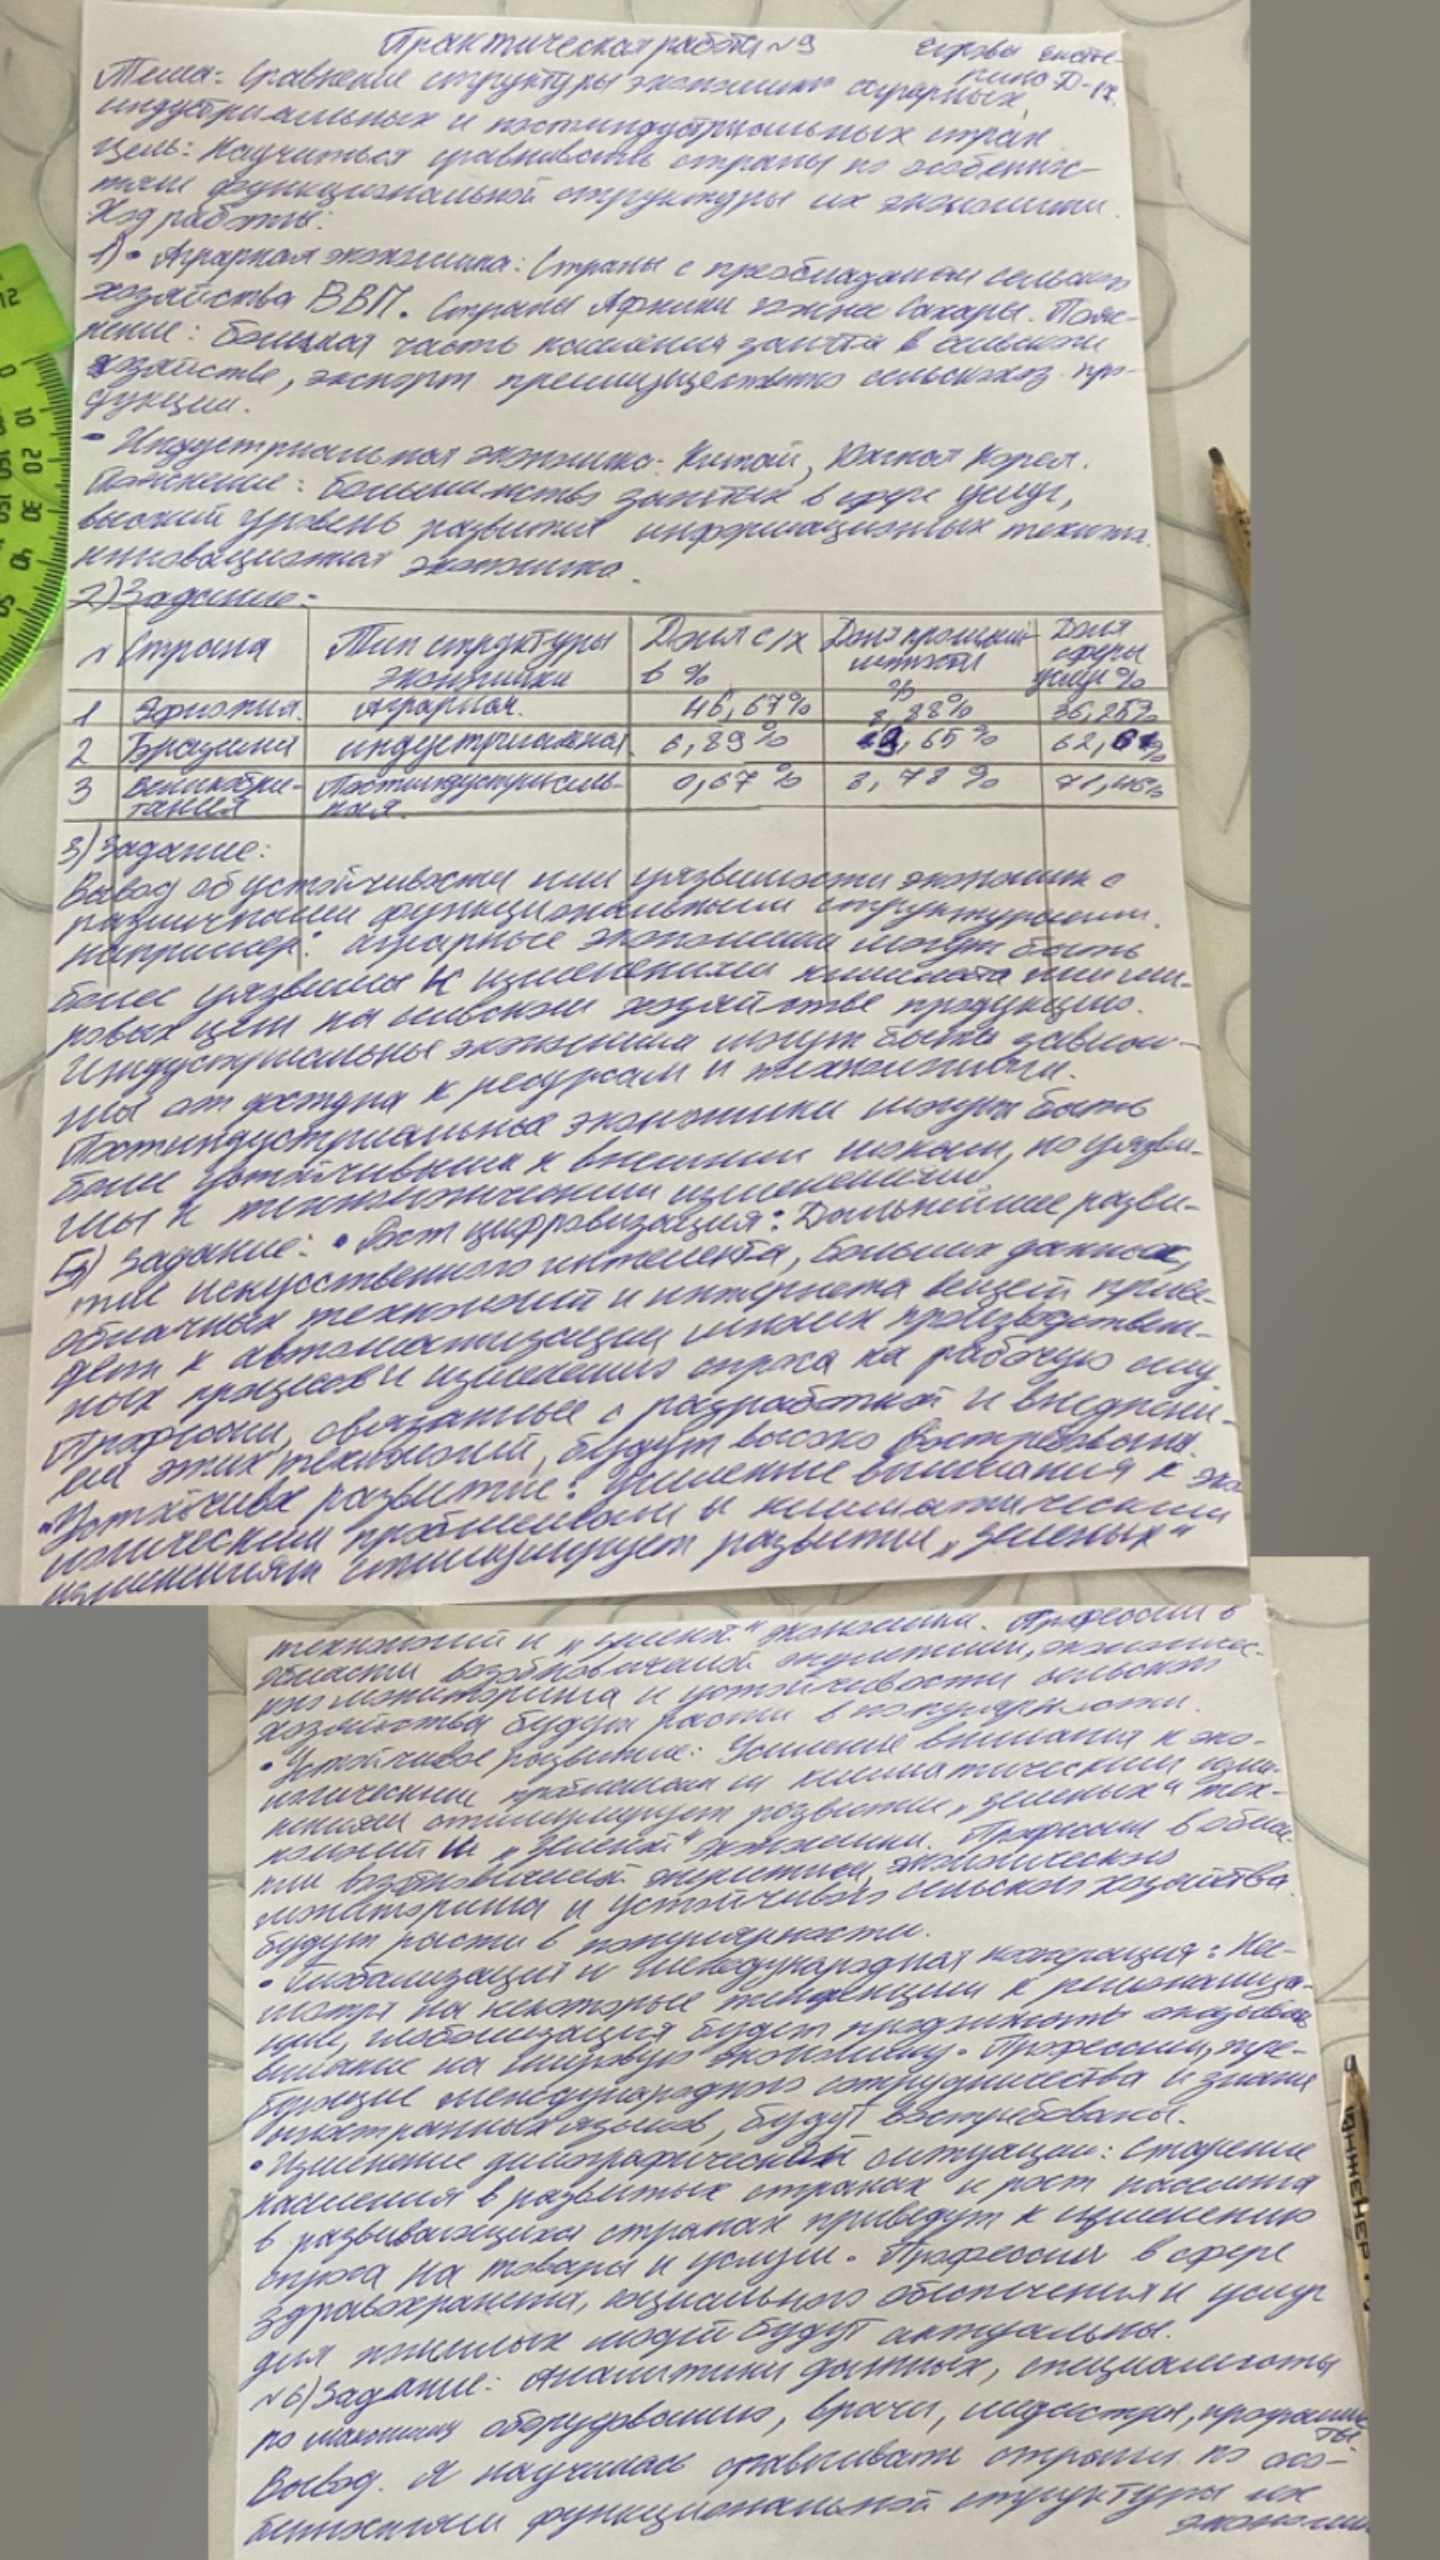 Практическая работа №9
Тема: Сравнение структуры экономики аграрных,
индустриальных и постиндустриальных стран
Цель: Научиться сравнивать страны по особеннос-
тям функциональной структуры их экономики.
Ход работы:
1) • Аграрная экономика: Страны с преобладанием сельского
хозяйства ВВП. Страны Африки южнее Сахары. Пояс-
нение: большая часть населения занята в сельском
хозяйстве, экспорт преимущественно сельскохоз. про-
дукции.
• Индустриальная экономика: Китай, Южная Корея.
Пояснение: большинство занятых в сфере услуг,
высокий уровень развития информационных технол.
инновационная экономика.
2) Задание:
№ Страна Тип структуры экономики Доля с/х в % Доля промышленности % Доля сферы услуг %
1 Эфиопия. Аграрная. 46,67% 8,88% 36,25%
2 Бразилия индустриальная 6,89% 19,65% 62,61%
3 Великобри-тания Постиндустриаль-ная. 0,67% 8,78% 71,46%
3) Задание:
Вывод об устойчивости или уязвимости экономик с
различными функциональными структурами.
например: аграрные экономики могут быть
более уязвимы к изменениям климата или ми-
ровых цен на сельском хозяйстве продукцию.
Индустриальные экономики могут быть зависи-
мы от доступа к ресурсам и технологиям.
Постиндустриальные экономики могут быть
более устойчивыми к внешним шокам, но уязви-
мы к технологическим изменениям.
5) Задание: • Рост цифровизация: Дальнейшее разви-
тие искусственного интелекта, больших данных,
облачных технологий и интернета вещей приве-
дет к автоматизации многих производствен-
ных процессов и изменению спроса на рабочую силу.
Профессии, связанные с разработкой и внедрени-
ем этих технологий, будут высоко востребованы.
• Устойчивое развитие: Усиление внимания к эко-
логическим проблемам и климатическим
изменениям стимулирует развитие „зеленых"
технологий и „зеленой" экономики. Профессии в
области возобновляемой энергетики, экологичес-
кого мониторинга и устойчивости сельского
хозяйства будут расти в популярности.
• Устойчивое развитие: Усиление внимания к эко-
логическим проблемам и климатическим изме-
нениям стимулирует развитие „зеленых" тех-
нологий и „зеленой" экономики. Профессии в облас-
ти возобновляемой энергетики, экологического
мониторинга и устойчивого сельского хозяйства
будут расти в популярности.
• Глобализация и международная кооперация: Нес-
мотря на некоторые тенденции к регионализа-
ции, глобализация будет продолжать оказывать
влияние на мировую экономику. Профессии, тре-
бующие международного сотрудничества и знания
иностранных языков, будут востребованы.
• Изменение демографической ситуации: Старение
населения в развитых странах и рост населения
в развивающихся странах приведут к изменению
спроса на товары и услуги. Профессии в сфере
здравоохранения, социального обеспечения и услуг
для пожилых людей будут актуальны.
№6) Задание: Аналитики данных, специалисты
по оборудованию, врачи, медсестры, программисты
Вывод. Я научилась сравнивать страны по осо-
бенностям функциональной структуры их
экономики
ИНЖЕНЕР